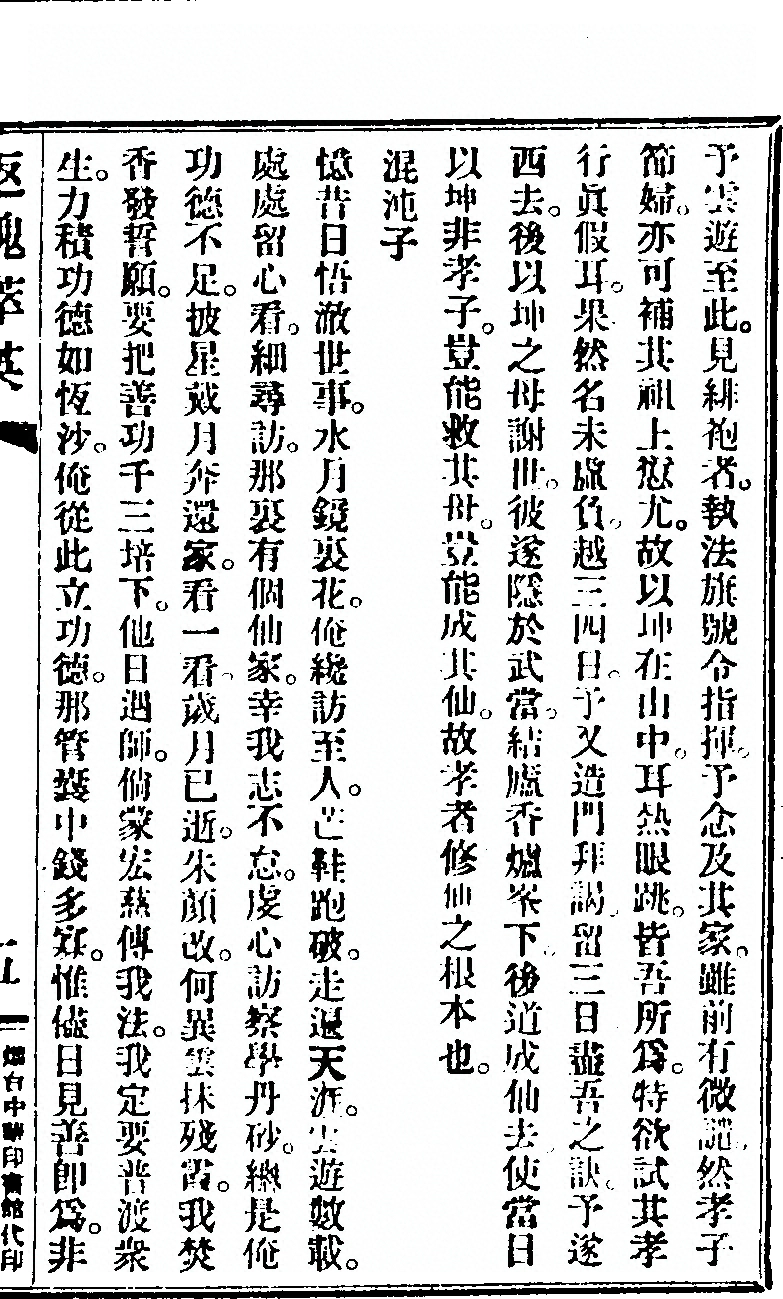 予雲遊至此。見緋袍者。執法旗號令指揮。予念及其家。雖前有微譴。然孝子
節婦。亦可補其祖上愆尤。故以坤在山中。耳熱眼跳。皆吾所爲。特欲試其孝
行眞假耳。果然名未虛負。越三四日。予又造門拜謁。留三日。盡吾之訣。予遂
西去。後以坤之母謝世。彼遂隱於武當。結廬香爐峯下。後道成仙去。使當日
以坤非孝子。豈能救其母。豈能成其仙。故孝者修仙之根本也。
混沌子
憶昔日悟澈世事。水月鏡裏花。俺纔訪至人。芒鞋跑破。走遍天涯。雲遊數載。
處處留心看。細尋訪。那裏有個仙家。幸我志不怠。虔心訪察學丹砂。總是俺
功德不足。披星戴月奔還家。看一看。歲月已逝。朱顏改。何異雲抹殘霞。我焚
香發誓願。要把善功千三培下。他日遇師。倘蒙宏慈傳我法。我定要普渡衆
生。力積功德如恆沙。俺從此立功德。那管囊中錢多寡。惟儘日見善卽爲。非
返魂萃英
五
烟台中華印書館代印